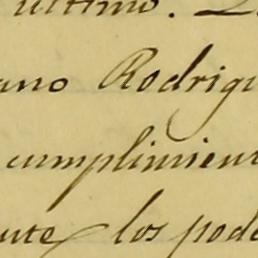 ultimo.
ano Rodrigu
cumplimient
los pode